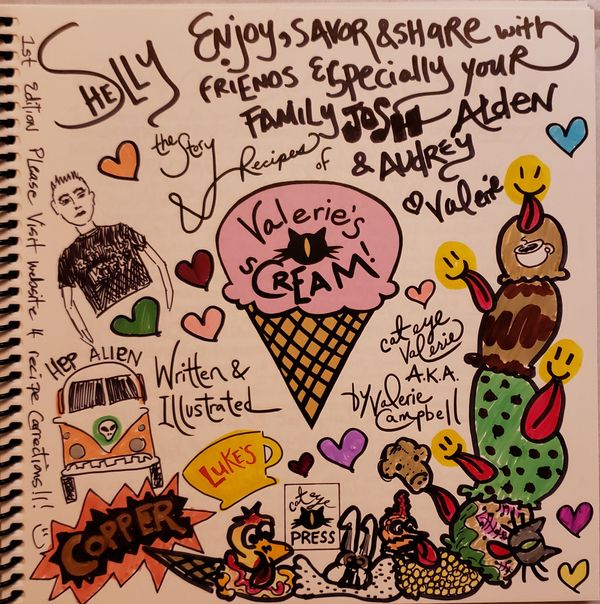 SHELLY
ENJOY, SAVOR & SHARE with
FRIENDS & Especially your
FAMILY JOSH Alden
& AUDREY
♡ Valerie
1st Edition Please Visit website 4 recipe corrections!!! :)
the Story
& Recipes of
Valerie's
sCREAM!
HEP ALIEN
Written &
Illustrated
cat eye
Valerie
A.K.A.
by Valerie
Campbell
LUKE'S
COPPER
cat eye
PRESS